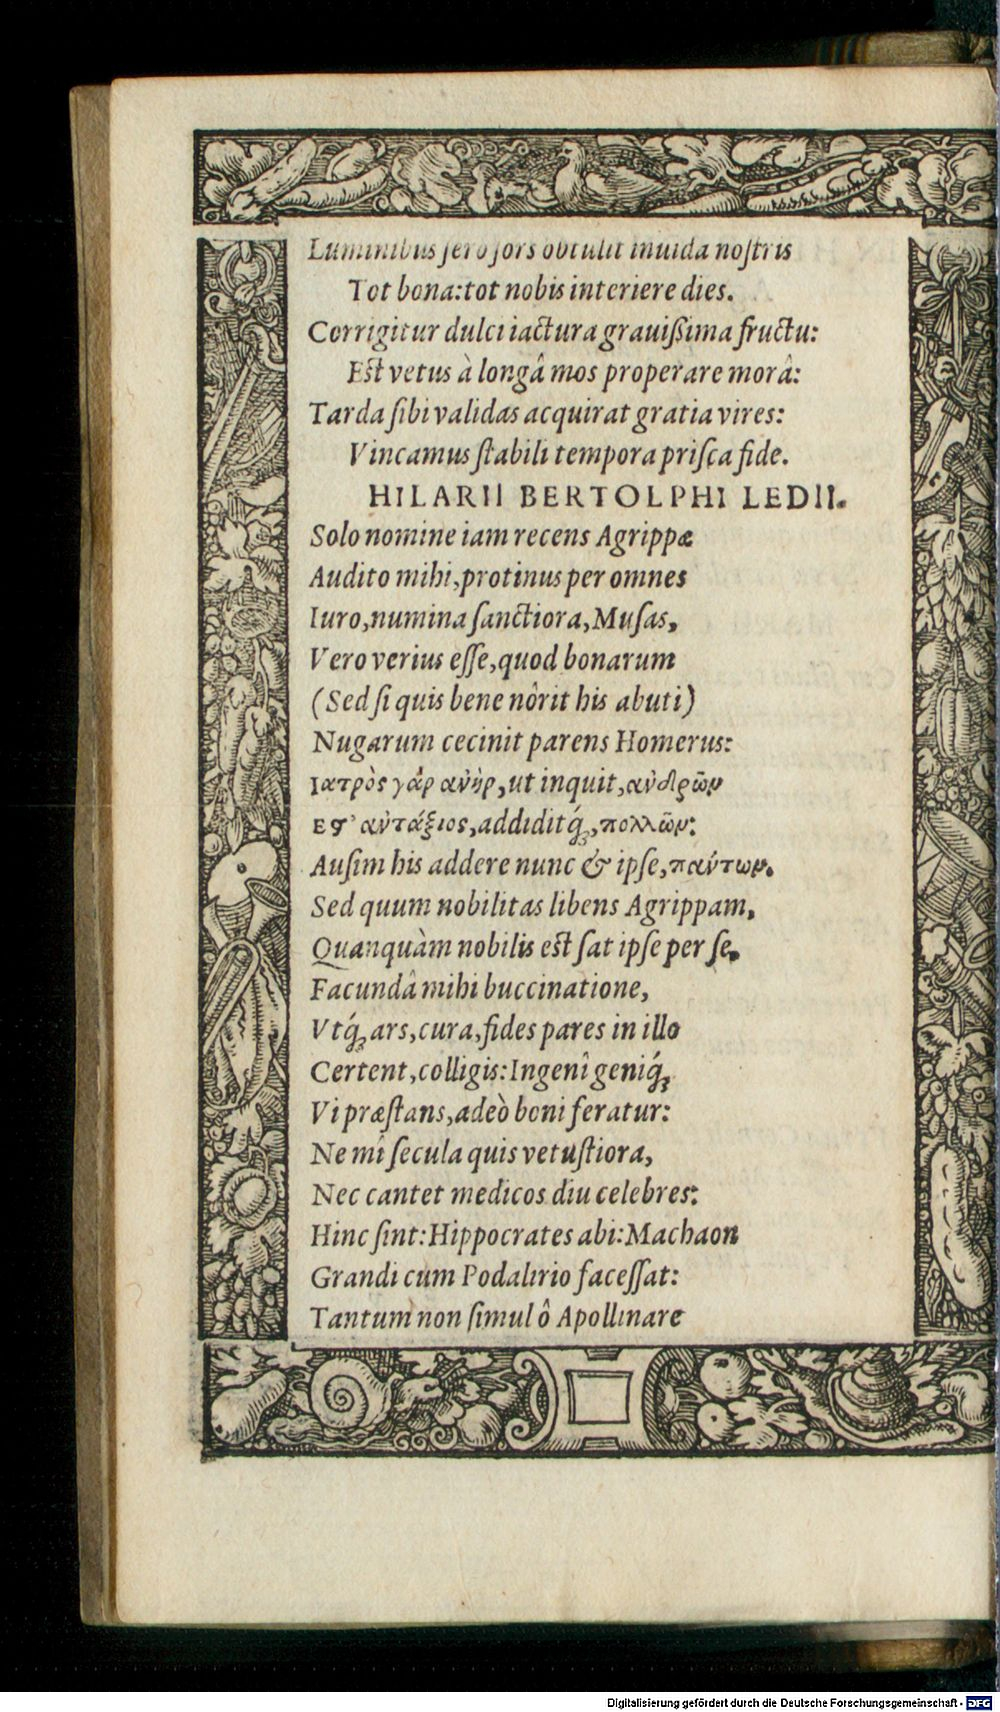 Luminibus ſero ſors obtulit inuida noſtris
Tot bona: tot nobis interiere dies.
Corrigitur dulci iactura grauiſsima fructu:
Est vetus à longâ mos properare morâ:
Tarda ſibi validas acquirat gratia vires:
Vincamus ſtabili tempora priſca fide.
HILARII BERTOLPHI LEDII.
Solo nomine iam recens Agrippæ
Audito mihi, protinus per omnes
Iuro, numina ſanctiora, Muſas,
Vero verius eſſe, quod bonarum
(Sed ſi quis bene nôrit his abuti)
Nugarum cecinit parens Homerus:
Ιατρὸς γάρ ανὴρ, ut inquit, ανδρῶν
Εστ' αντάξιος, addiditq́ꝫ, πολλῶν:
Auſim his addere nunc & ipſe, πάντων.
Sed quum nobilitas libens Agrippam,
Quanquàm nobilis est ſat ipſe per ſe,
Facundâ mihi buccinatione,
Vtq́ꝫ ars, cura, fides pares in illo
Certent, colligis: Ingenî geniq́ꝫ
Vi præſtans, adeò boni feratur:
Ne mî ſecula quis vetuſtiora,
Nec cantet medicos diu celebres:
Hinc ſint: Hippocrates abi: Machaon
Grandi cum Podalirio faceſſat:
Tantum non ſimul ô Apollinare
Digitalisierung gefördert durch die Deutsche Forschungsgemeinschaft - DFG